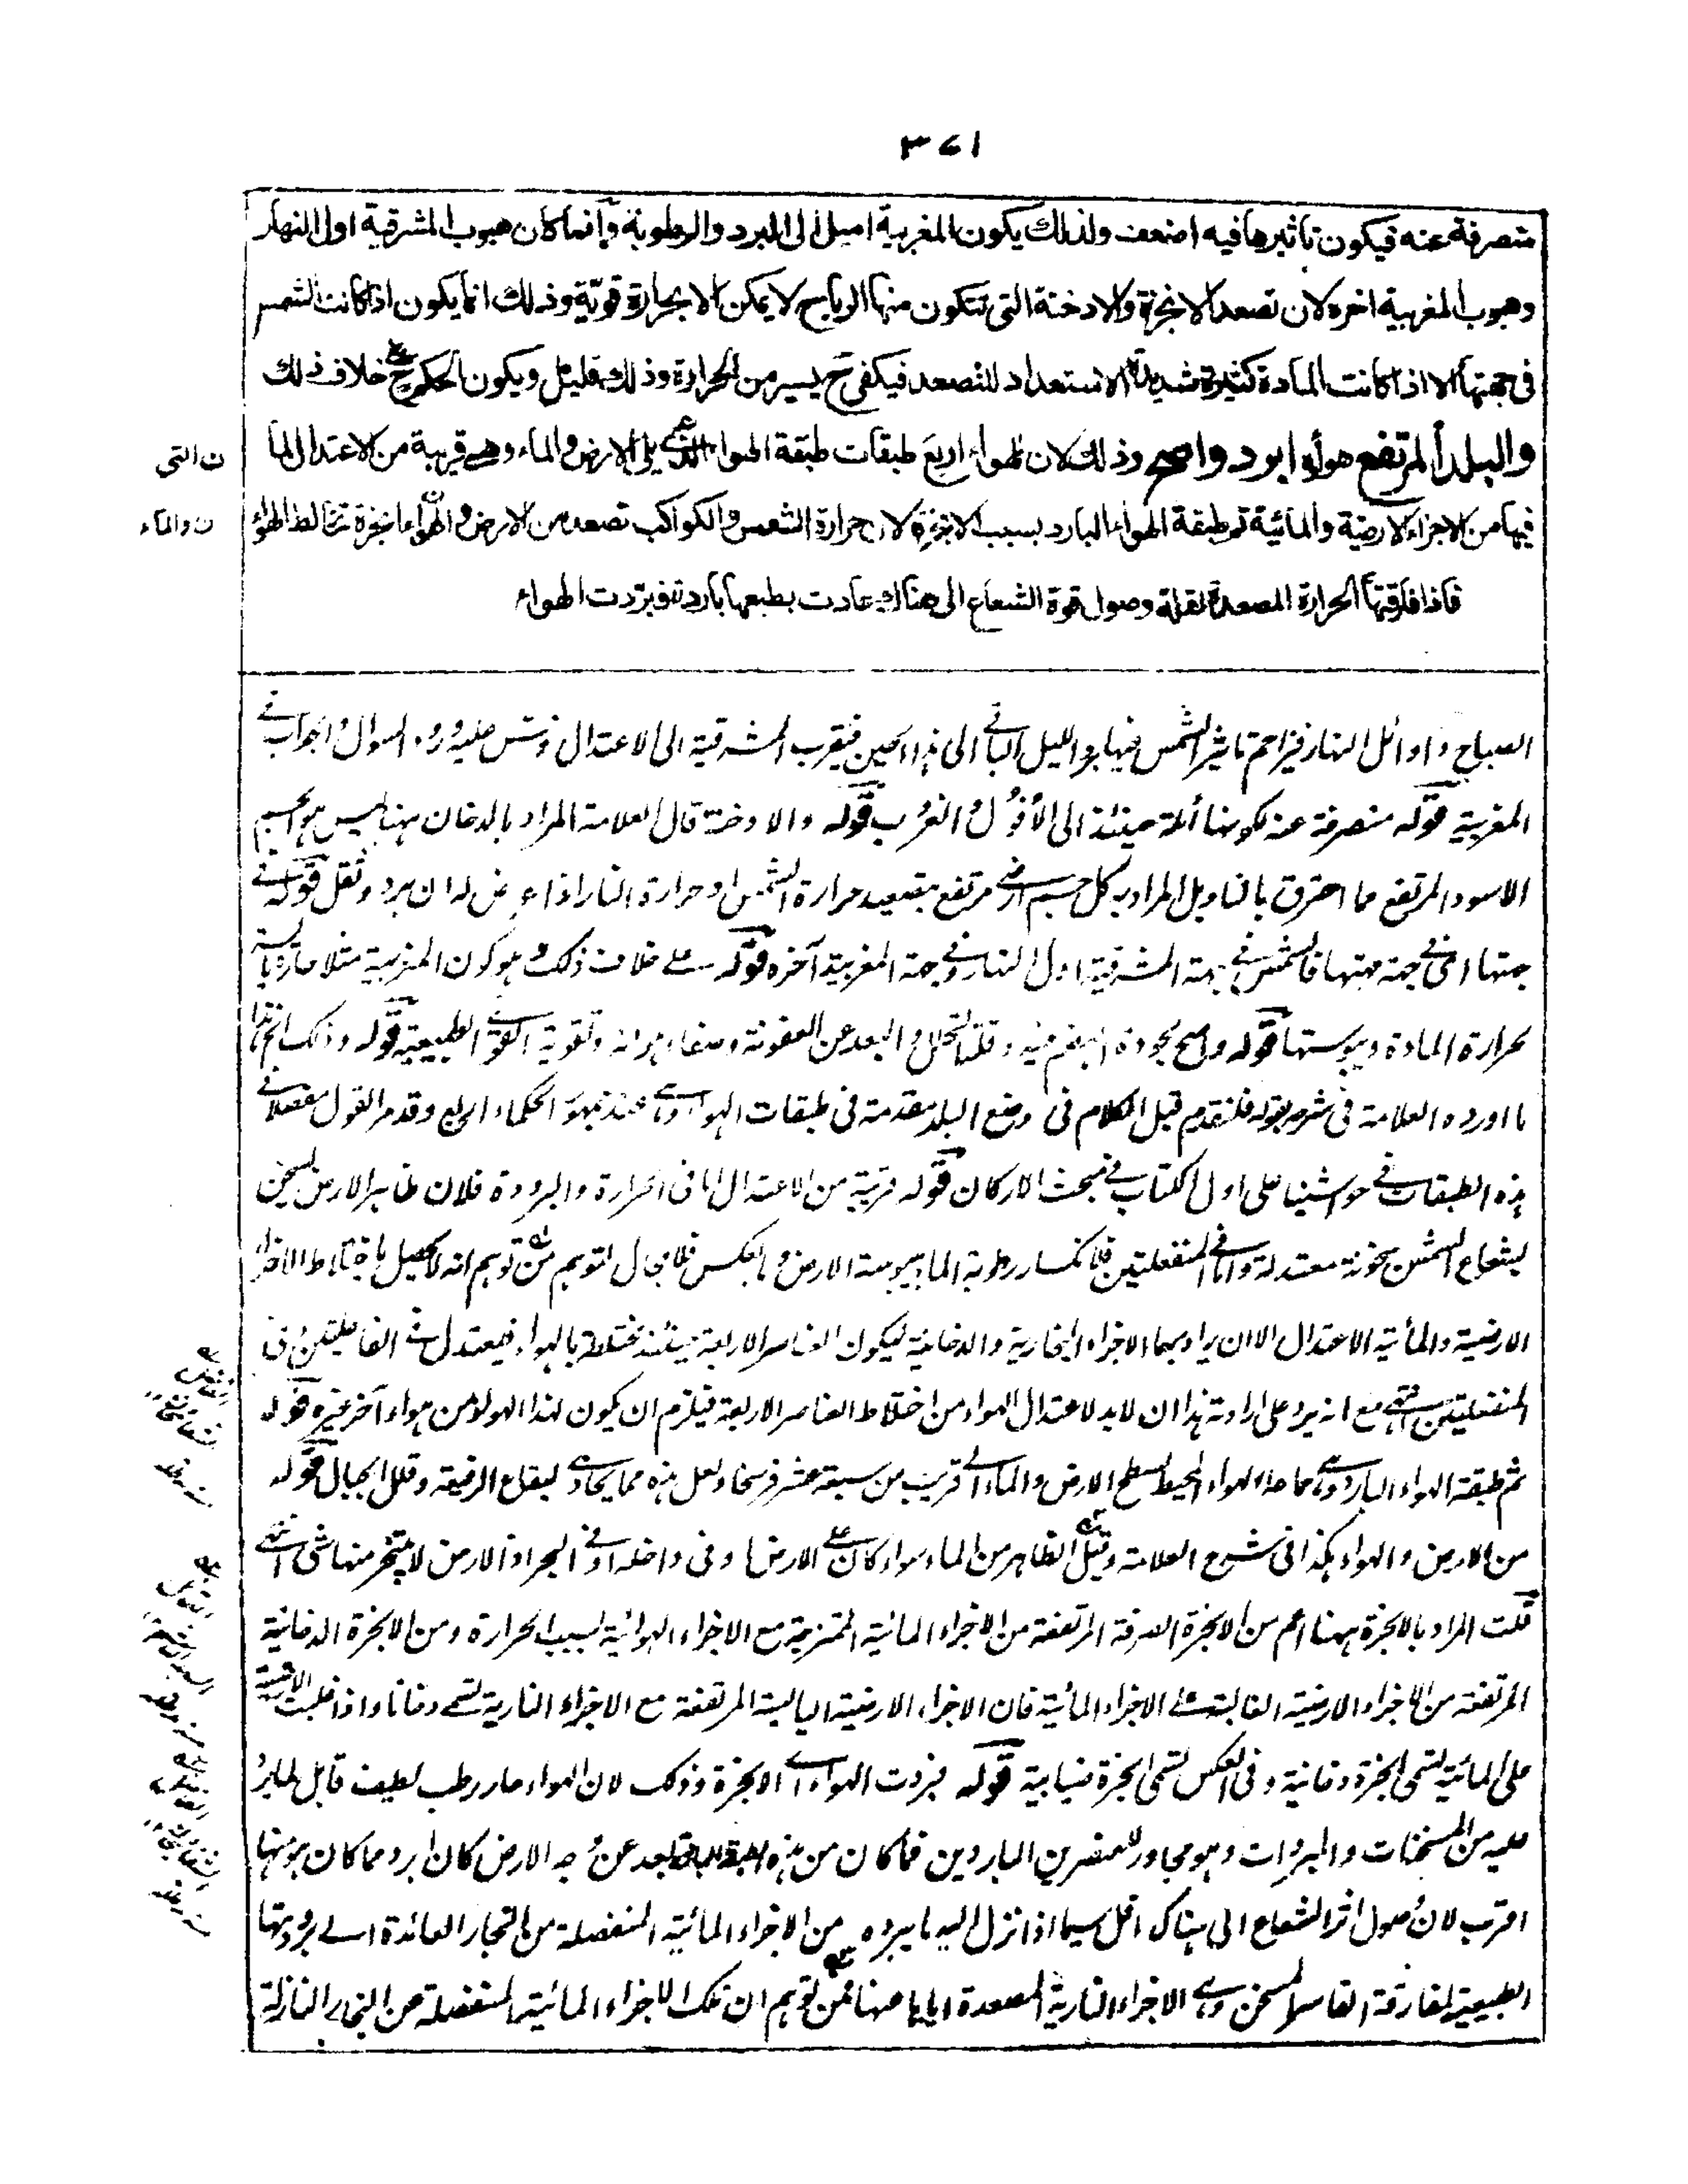 ٣٧١
منصرفة عنه فيكون تأثيرها فيه اضعف ولذلك يكون المغربية اميل الى البرد والرطوبة وانما كان هبوب المشرقية اول النهار
وهبوب المغربية اخره لان تصعد الابخرة والادخنة التى تتكون منها الرياح لا يمكن الا بحرارة قوية وذلك انما يكون اذا كانت الشمس
فى جهتها الا اذا كانت المادة كثيرة شديدة الاستعداد للتصعد فيكفى ح يسير من الحرارة وذلك قليل ويكون الحكم ح على خلاف ذلك
والبلد المرتفع هوأه ابرد واصح وذلك لان للهواء اربع طبقات طبقة الهواء الذى يلى الارض والماء وهى قريبة من الاعتدال لما
فيها من الاجزاء الارضية والمائية ثم طبقة الهواء البارد بسبب الابخرة لان حرارة الشمس والكواكب تصعد من الارض و الهواء ابخرة تخالط الهواء
فاذا فارقتها الحرارة المصعدة لقلة وصول قوة الشعاع الى هناك عادت بطبعها باردة فبردت الهواء
ن التى
ن والماء
الصباح واوائل النهار فيزاحم تاثير الشمس فيها برد الليل الباقى الى هذا الحين فيقرب المشرقية الى الاعتدال وقس عليه ورود السوال والجواب فى
المغربية قوله منصرفة عنه لكونها مائلة حينئذ الى الأفول و الغروب قوله والادخنة قال العلامة المراد بالدخان ههنا ليس هو الجسم
الاسود المرتفع مما احترق بالنار بل المراد به كل جسم ارضى مرتفع بتصعيد حرارة الشمس او حرارة النار اذا عرض له ان برد وثقل قوله فى
جهتها اى فى جهة مهبها فالشمس فى جهة المشرقية اول النهار وفى جهة المغربية آخره قوله على خلاف ذلك وهو كون المغربية مثلا حارة يابسة
لحرارة المادة ويبوستها قوله واصح لجودة الهضم فيه وقلة التحلل و البعد عن العفونة وصفاء هوائه وتقوية القوى الطبيعية قوله وذلك الخ هذا
ما اورده العلامة فى شرحه بقوله فلنقدم قبل الكلام فى وضع البلد مقدمة فى طبقات الهواء وهى عند جمهور الحكماء اربع وقد مر القول مفصلا فى
هذه الطبقات فى حواشينا على اول الكتاب فى مبحث الاركان قوله قريبة من الاعتدال اما فى الحرارة والبرودة فلان ظاهر الارض يسخن
بشعاع الشمس سخونة معتدلة واما فى المنفعلتين فلانكسار رطوبة الماء بيبوسة الارض و بالعكس فلا مجال لتوهم من توهم انه لا يحصل باختلاط الاجزاء
الارضية والمائية الاعتدال الا ان يراد بهما الاجزاء البخارية والدخانية ليكون العناصر الاربعة حينئذ مختلطة بالهواء فيعتدل فى الفاعلتين وفى
المنفعلتين انتهى مع انه يرد على ارادته هذا ان لابد لاعتدال الهواء من اختلاط العناصر الاربعة فيلزم ان يكون لهذا الهواء من هواء آخر غيره قوله
ثم طبقة الهواء البارد وهى مما عدا الهواء المحيط بسطح الارض والماء الى قريب من سبعة عشر فرسخا ولعل هذه مما يحاذى البقاع الرفيعة وقلل الجبال قوله
من الارض والهواء هكذا فى شرح العلامة وقيل الظاهر من الماء سواء كان على الارض او فى داخله او فى البحر اذ الارض لا يتبخر منها شئ انتهى
قلت المراد بالابخرة ههنا اعم من الابخرة الصرفة المرتفعة من الاجزاء المائية الممتزجة مع الاجزاء الهوائية بسبب الحرارة ومن الابخرة الدخانية
المرتفعة من الاجزاء الارضية الغالبة على الاجزاء المائية فان الاجزاء الارضية اليابسة المرتفعة مع الاجزاء النارية تسمى دخانا واذا غلبت الارضية
على المائية تسمى ابخرة دخانية وفى العكس تسمى ابخرة ضبابية قوله فبردت الهواء اى الابخرة وذلك لان الهواء حار رطب لطيف قابل لما يرد
عليه من المسخنات والمبردات وهو مجاور للعنصرين الباردين فما كان من هذه الطبقة الباردة ابعد عن وجه الارض كان ابرد مما كان هو منها
اقرب لان وصول اثر الشعاع الى هناك اقل سيما اذا نزل اليه ما يبرده من الاجزاء المائية المنفصلة من البخار العائدة الى برودتها
الطبيعية لمفارقة القاسر المسخن وهى الاجزاء النارية المصعدة اياها منها فمن توهم ان تلك الاجزاء المائية المنفصلة عن البخار النازلة